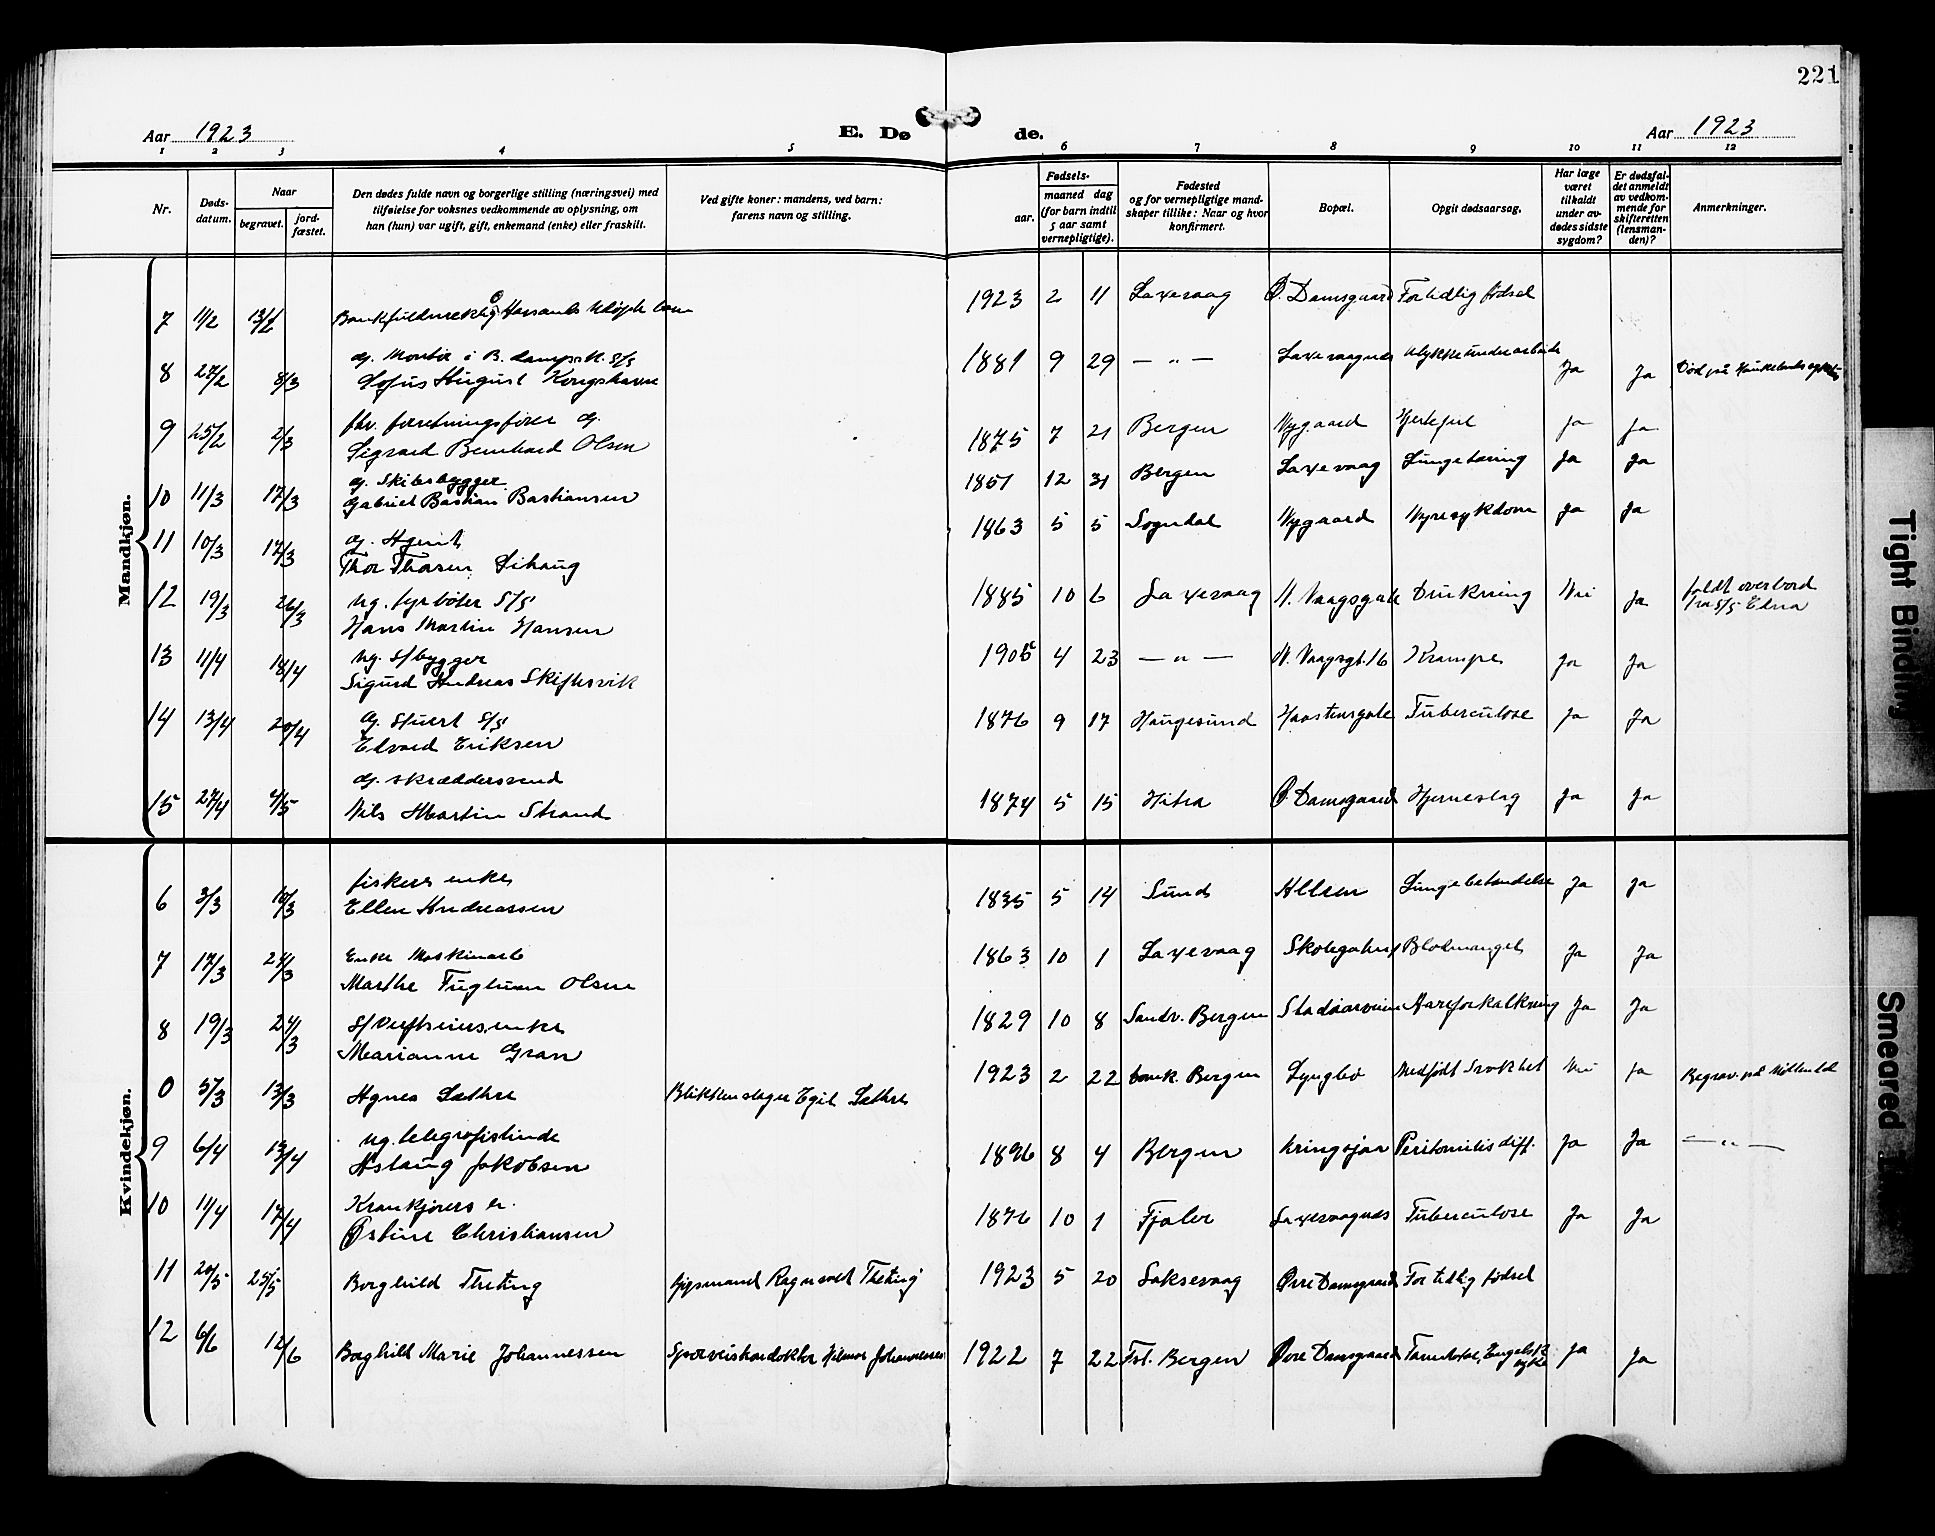 221
Aar 1923 E. Dø de. Aar 1923
1 2 3 4 5 6 7 8 9 10 11 12
Nr.
Døds-
datum.
Naar
begravet.
jord-
fæstet.
Den dødes fulde navn og borgerlige stilling (næringsvei) med
tilføielse for voksnes vedkommende av oplysning, om
han (hun) var ugift, gift, enkemand (enke) eller fraskilt.
Ved gifte koner: mandens, ved barn:
farens navn og stilling.
Fødsels-
aar.
maaned dag
(for barn indtil
5 aar samt
vernepligtige).
Fødested
og for vernepligtige mand-
skaper tillike: Naar og hvor
konfirmert.
Bopæl.
Opgit dødsaarsag.
Har læge
været
tilkaldt
under av-
dødes sidste
sygdom?
Er dødsfal-
det anmeldt
av vedkom-
mende for
skifteretten
(lensman-
den)?
Anmerkninger.
Mandkjøn.
7 11/2 13/2 1923 2 11 Laxevaag Ø. Damsgaard For tidlig fødsel
8 27/2 8/3 g. Montør i B. Dampsk. S/S
Sofus August Kongshavn 1881 9 29 — " — Laxevaagnes Ulykke under arbeide Ja Ja
9 25/2 2/3 fhv. forretningsfører g.
Sigvard Bernhard Olsen 1875 7 21 Bergen Nygaard Hjertefeil Ja Ja
10 11/3 17/3 g. Skibsbygger
Gabriel Bastian Bastiansen 1851 12 31 Bergen Laxevaag Lungetæring Ja Ja
11 10/3 17/3 g. Agent
Thor Thorsen Lihaug 1863 5 5 Sogndal Nygaard Nyresykdom Ja Ja
12 19/3 26/3 ug. fyrbøter S/S
Hans Martin Hansen 1885 10 6 Laxevaag N. Vaagsgate Drukning Nei Ja faldt overbord
fra S/S Edna
13 11/4 18/4 ug. S/bygger
Sigurd Andreas Skiftesvik 1905 4 23 — " — N. Vaagsgt. 16 Krampe Ja Ja
14 13/4 20/4 g. Stuert S/S
Edvard Eriksen 1876 9 17 Haugesund Haastensgate Tuberculose Ja Ja
15 27/4 4/5 g. skræddersvend
Nils Martin Strand 1874 5 15 Hitra Ø. Damsgaard Hjerneslag Ja Ja
Kvindekjøn.
6 3/3 10/3 fiskers enke
Ellen Andreassen 1835 5 14 Sund Lungebetændelse Ja Ja
7 17/3 24/3 Enke Maskinarb
Marthe Olsen 1863 10 1 Laxevaag Blodmangel Ja Ja
8 19/3 24/3
Marianne Gran 1829 10 8 Sandv. Bergen Aareforkalkning Ja Ja
0 5/3 13/3 Agnes Læthre Blikkenslager Egil Læthre 1923 2 22 Bergen Lyngbø Medfødt Svakhet Nei Ja Begrav. på Møllendal
9 6/4 13/4 ug. telegrafistinde
Aslaug Jakobsen 1896 8 4 Bergen Kringsjaa Peritonitis diff. Ja Ja — " —
10 11/4 17/4 Krankjørers e.
Østine Christiansen 1876 10 1 Fjaler Laxevaagnes Tuberculose Ja Ja
11 20/5 25/5 Borghild Theting Gipsmand Ragnvald Theting 1923 5 20 Laksevaag Øvre Damsgaard For tidlig fødsel
12 6/6 12/6 Borghild Marie Johannessen Sporveiskonduktør Hilmar Johannessen 1922 7 22 Fst. Bergen Øvre Damsgaard Engelsk syke Ja Ja
Tight Binding
Smeared